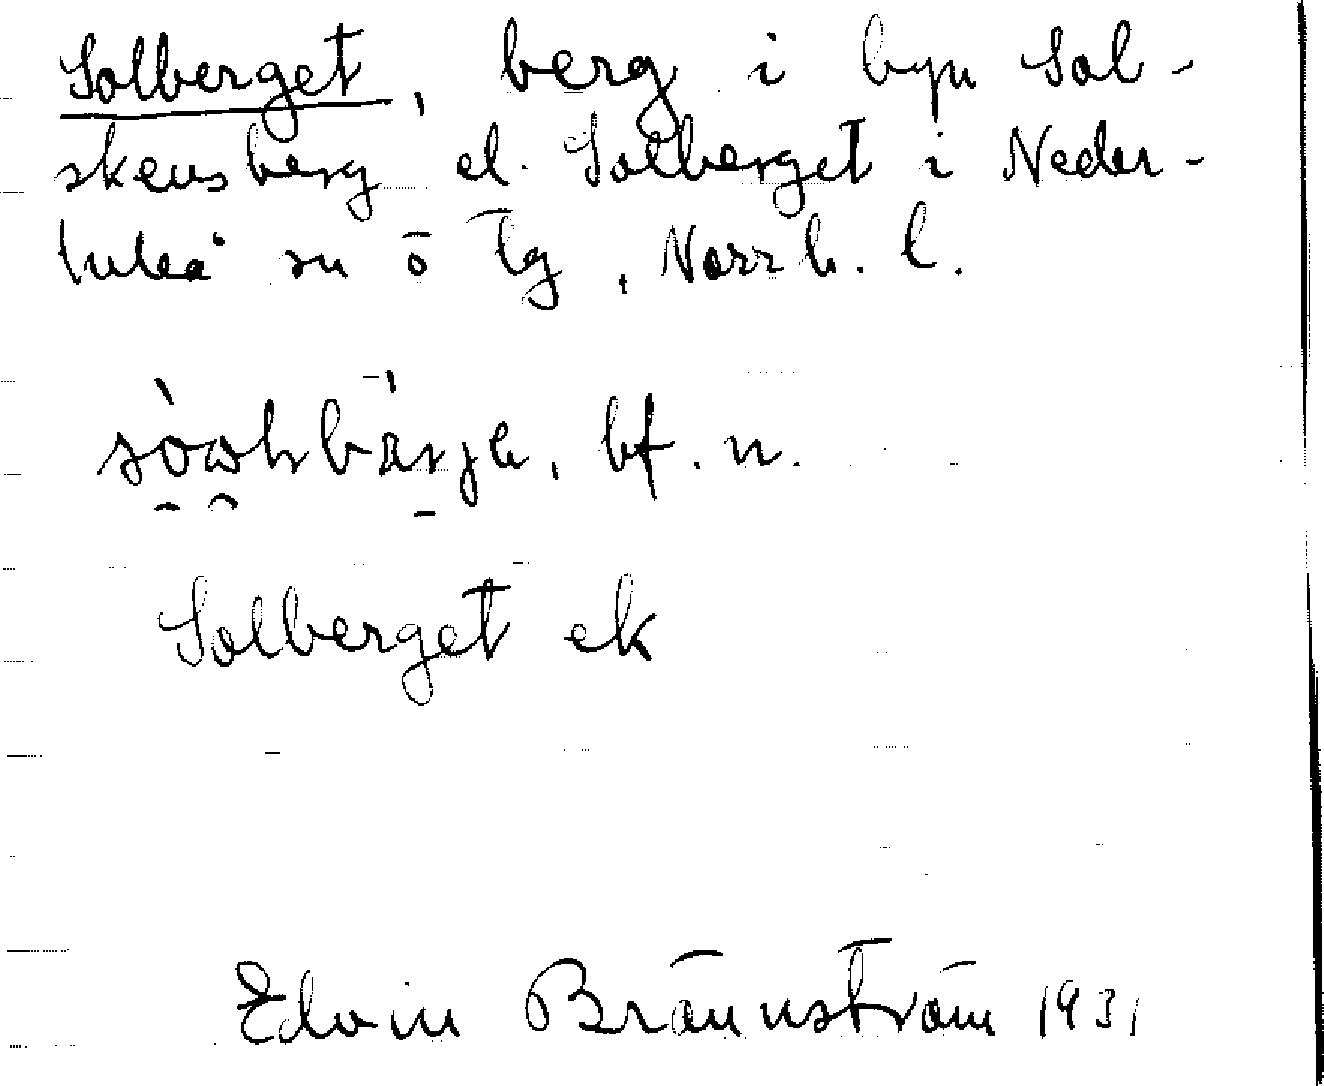 Solberget, berg i byn Sol-
skensberg el. Solberget i Neder-
luleå sn ö tg, Norrb. l.
bf. n.
Solberget ek
Edvin Brännström 1931